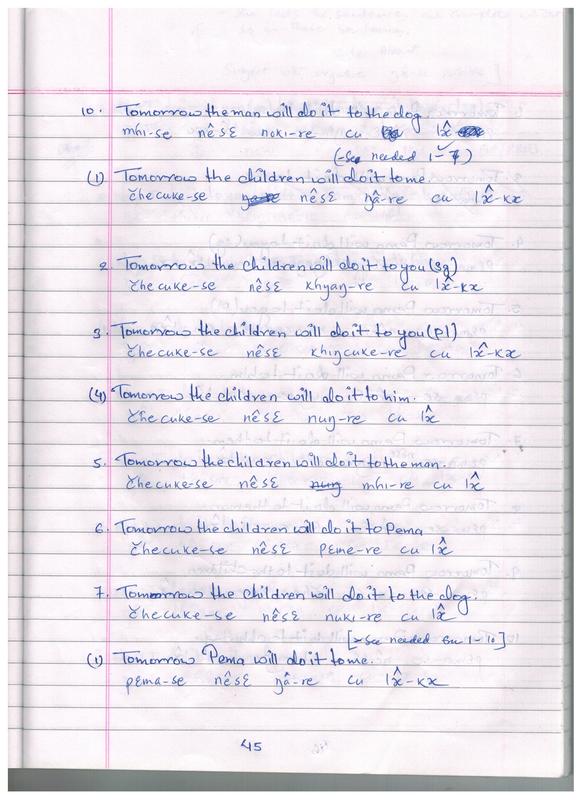 10. Tomorrow the man will do it to the dog.
mhi-se nêsɛ nɑkɪ-re cu lʌ̂
(-se needed 1-7)
(1) Tomorrow the children will do it to me.
čhecuke-se nêsɛ ŋâ-re cu lʌ̂-kʌ
2. Tomorrow the children will do it to you (sg)
čhecuke-se nêsɛ khyaŋ-re cu lʌ̂-kʌ
3. Tomorrow the children will do it to you (pl)
čhecuke-se nêsɛ khiŋcuke-re cu lʌ̂-kʌ
(4) Tomorrow the children will do it to him.
čhecuke-se nêsɛ nuŋ-re cu lʌ̂
5. Tomorrow the children will do it to the man.
čhecuke-se nêsɛ nuŋ mhi-re cu lʌ̂
6. Tomorrow the children will do it to Pema
čhecuke-se nêsɛ peme-re cu lʌ̂
7. Tomorrow the children will do it to the dog.
čhecuke-se nêsɛ nukɪ-re cu lʌ̂
[-se needed 1-10]
(1) Tomorrow Pema will do it to me.
pema-se nêsɛ ŋâ-re cu lʌ̂-kʌ
45